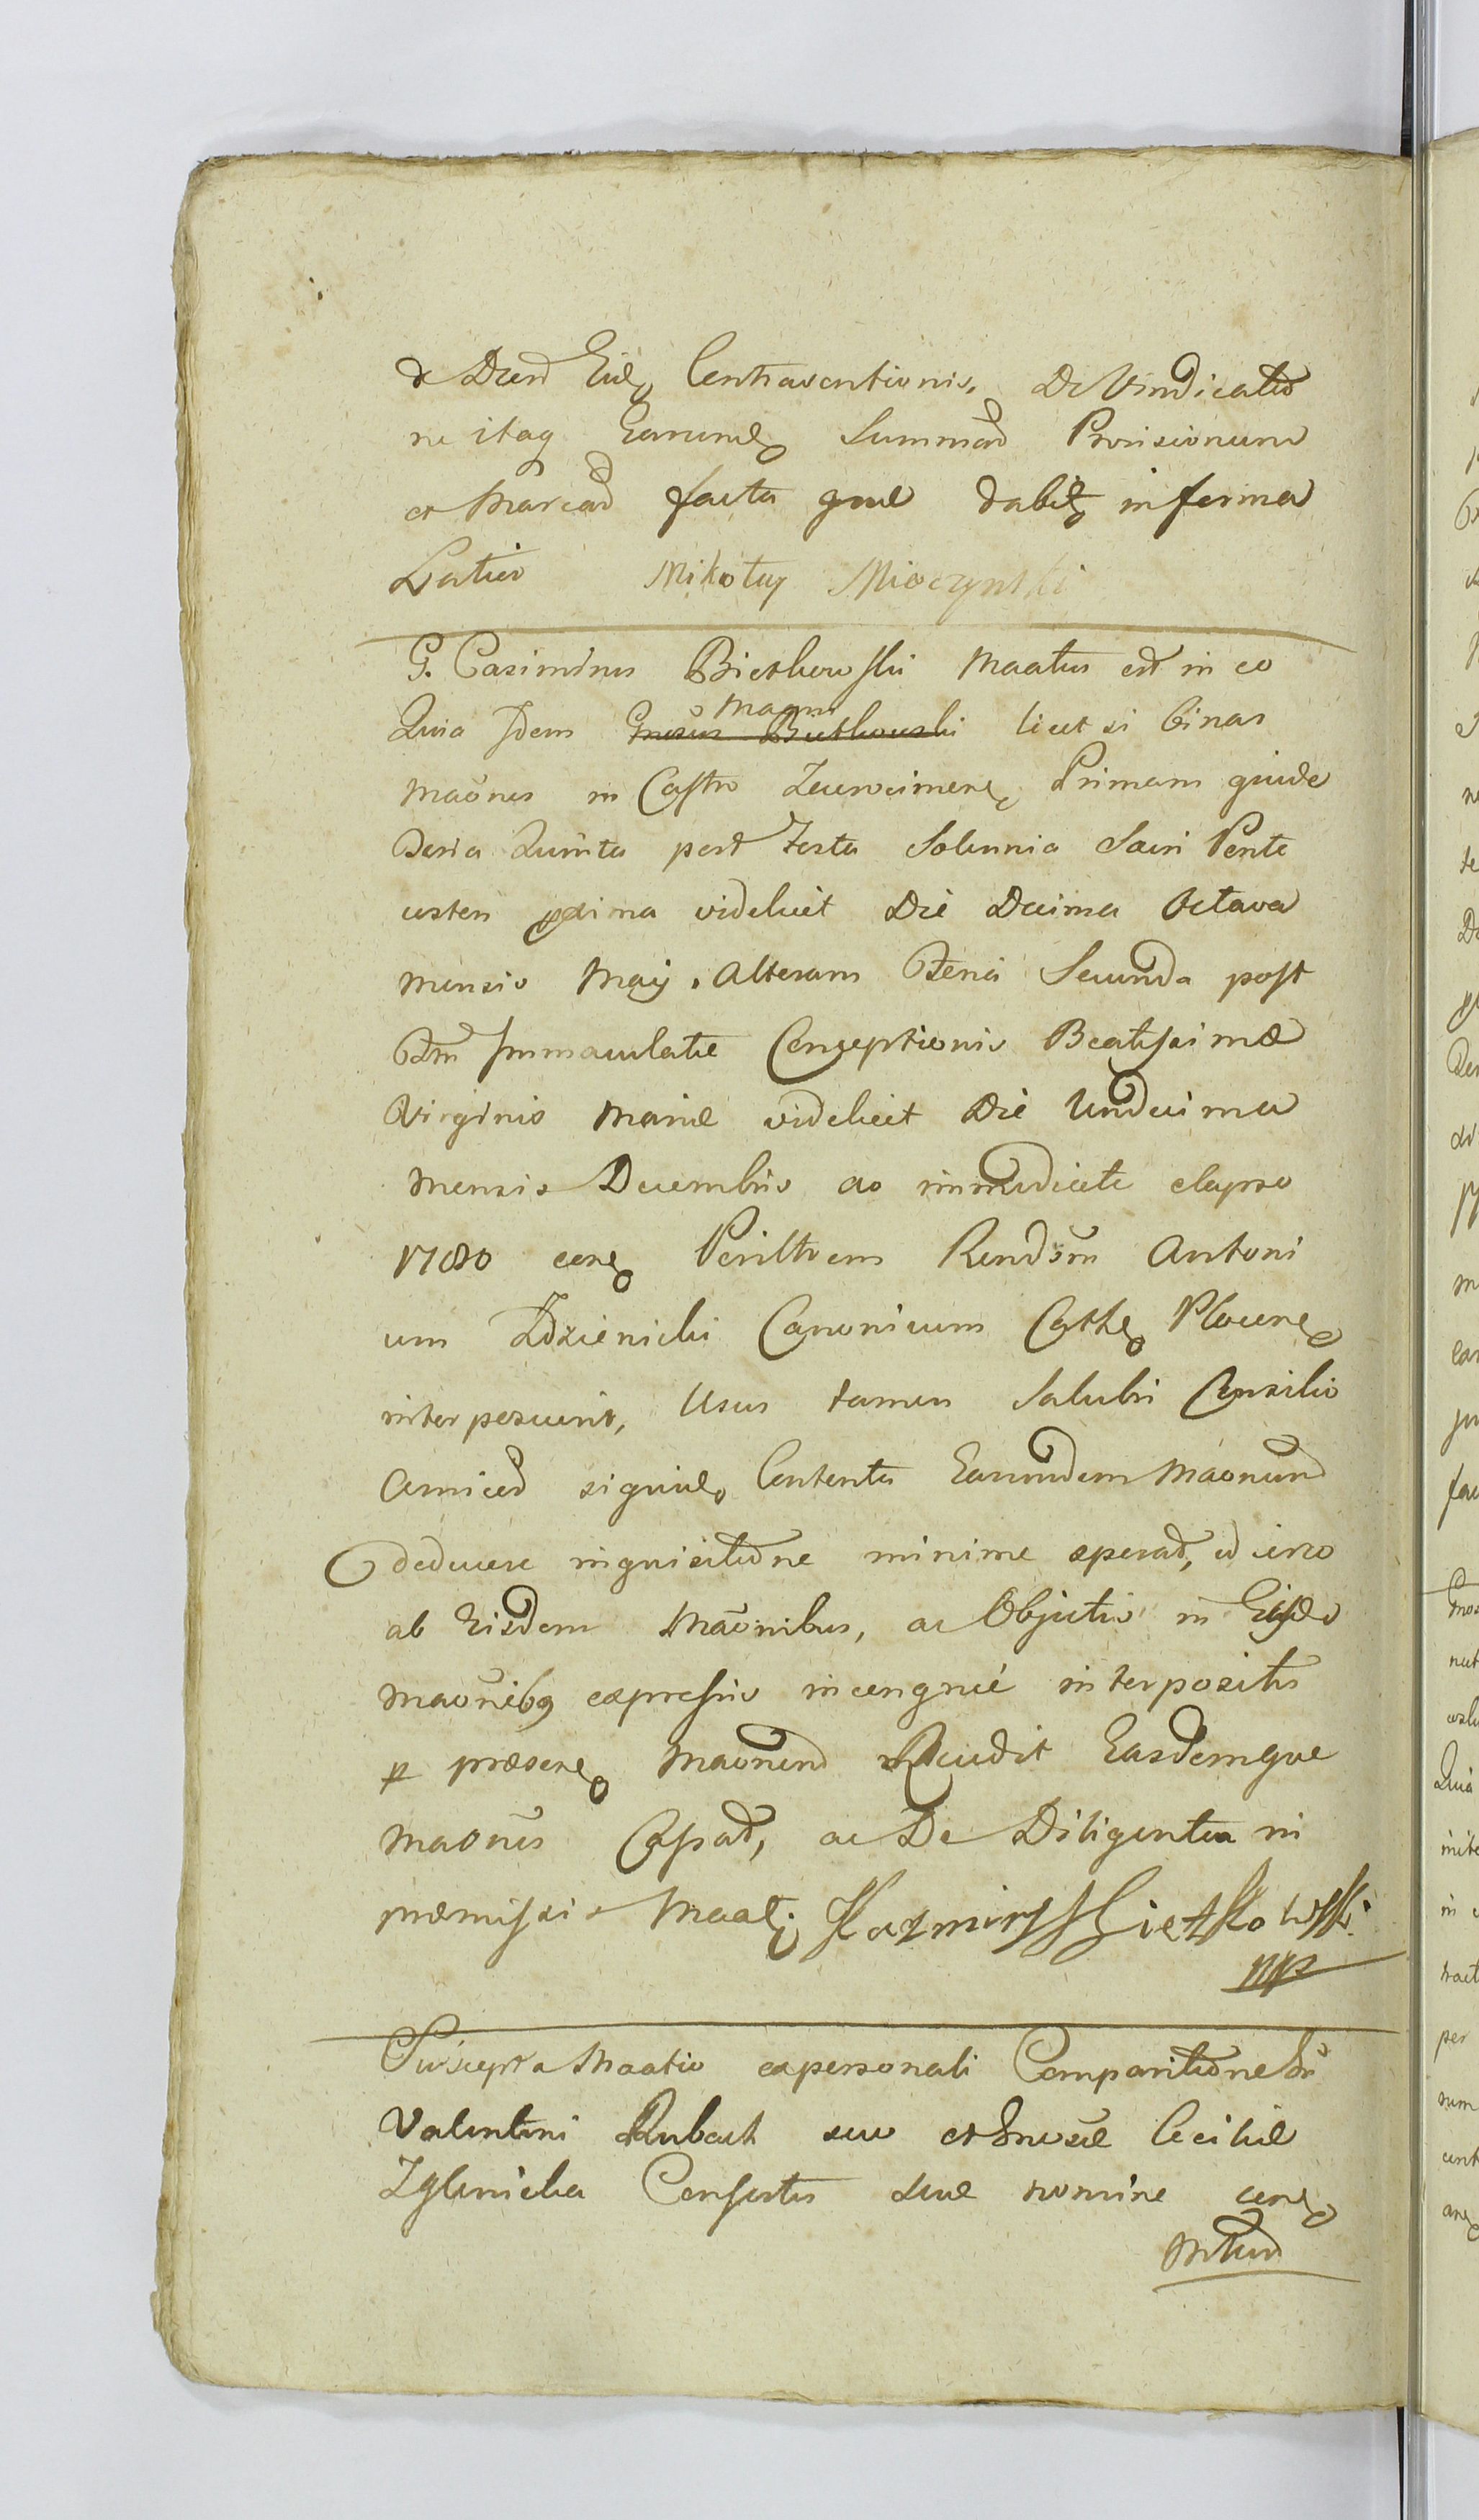 & Decr Eid Contraventionis, De Vindicatio
ne itaq Earund Summar Provisionum
et Marcar facta que dabit in forma
Latior Mikołay Mioczynski
G. Casimirus Bietkowski Maatus est in eo
Manns
Quia Idem Gnosus Bietkowski licet si binas
maönes in Castro Zeurocimen Primam quide
Feria Quinta post Festa Solennia Sacri Pente
costen pxima videlicet Die Decima Octava
mensis Maij. Alteram Feria Secunda post
Ftm Immaculatæ Conceptionis Beatissimæ
Virginis Mariæ videlicet Die Undecima
Mensis Decembris ao immediate elapso
1780 con Perilltrem Rendsm Antoni
um Zdzienicki Canonicum Cath Plocen
interposuerit, Usus tamen Salubri Consilio
Amicor Contenta Earumdem Maonum
deducere inquisitione minime sperat, id circo
ab Eisdem Maönibus, ac Objectis in Eisd
maönibq expressis incongrue interpositis
p præsen Maonem Recedit Easdemque
maones Cassat, ac De Diligentia in
præmissis Maat. Kazmirz Bietkowski
mp
Suscepta Maatio ex personali Comparitione
Valentini Rubach suo et Gnosæ Ceciliæ
Zglinicka Consortis suæ nomine con